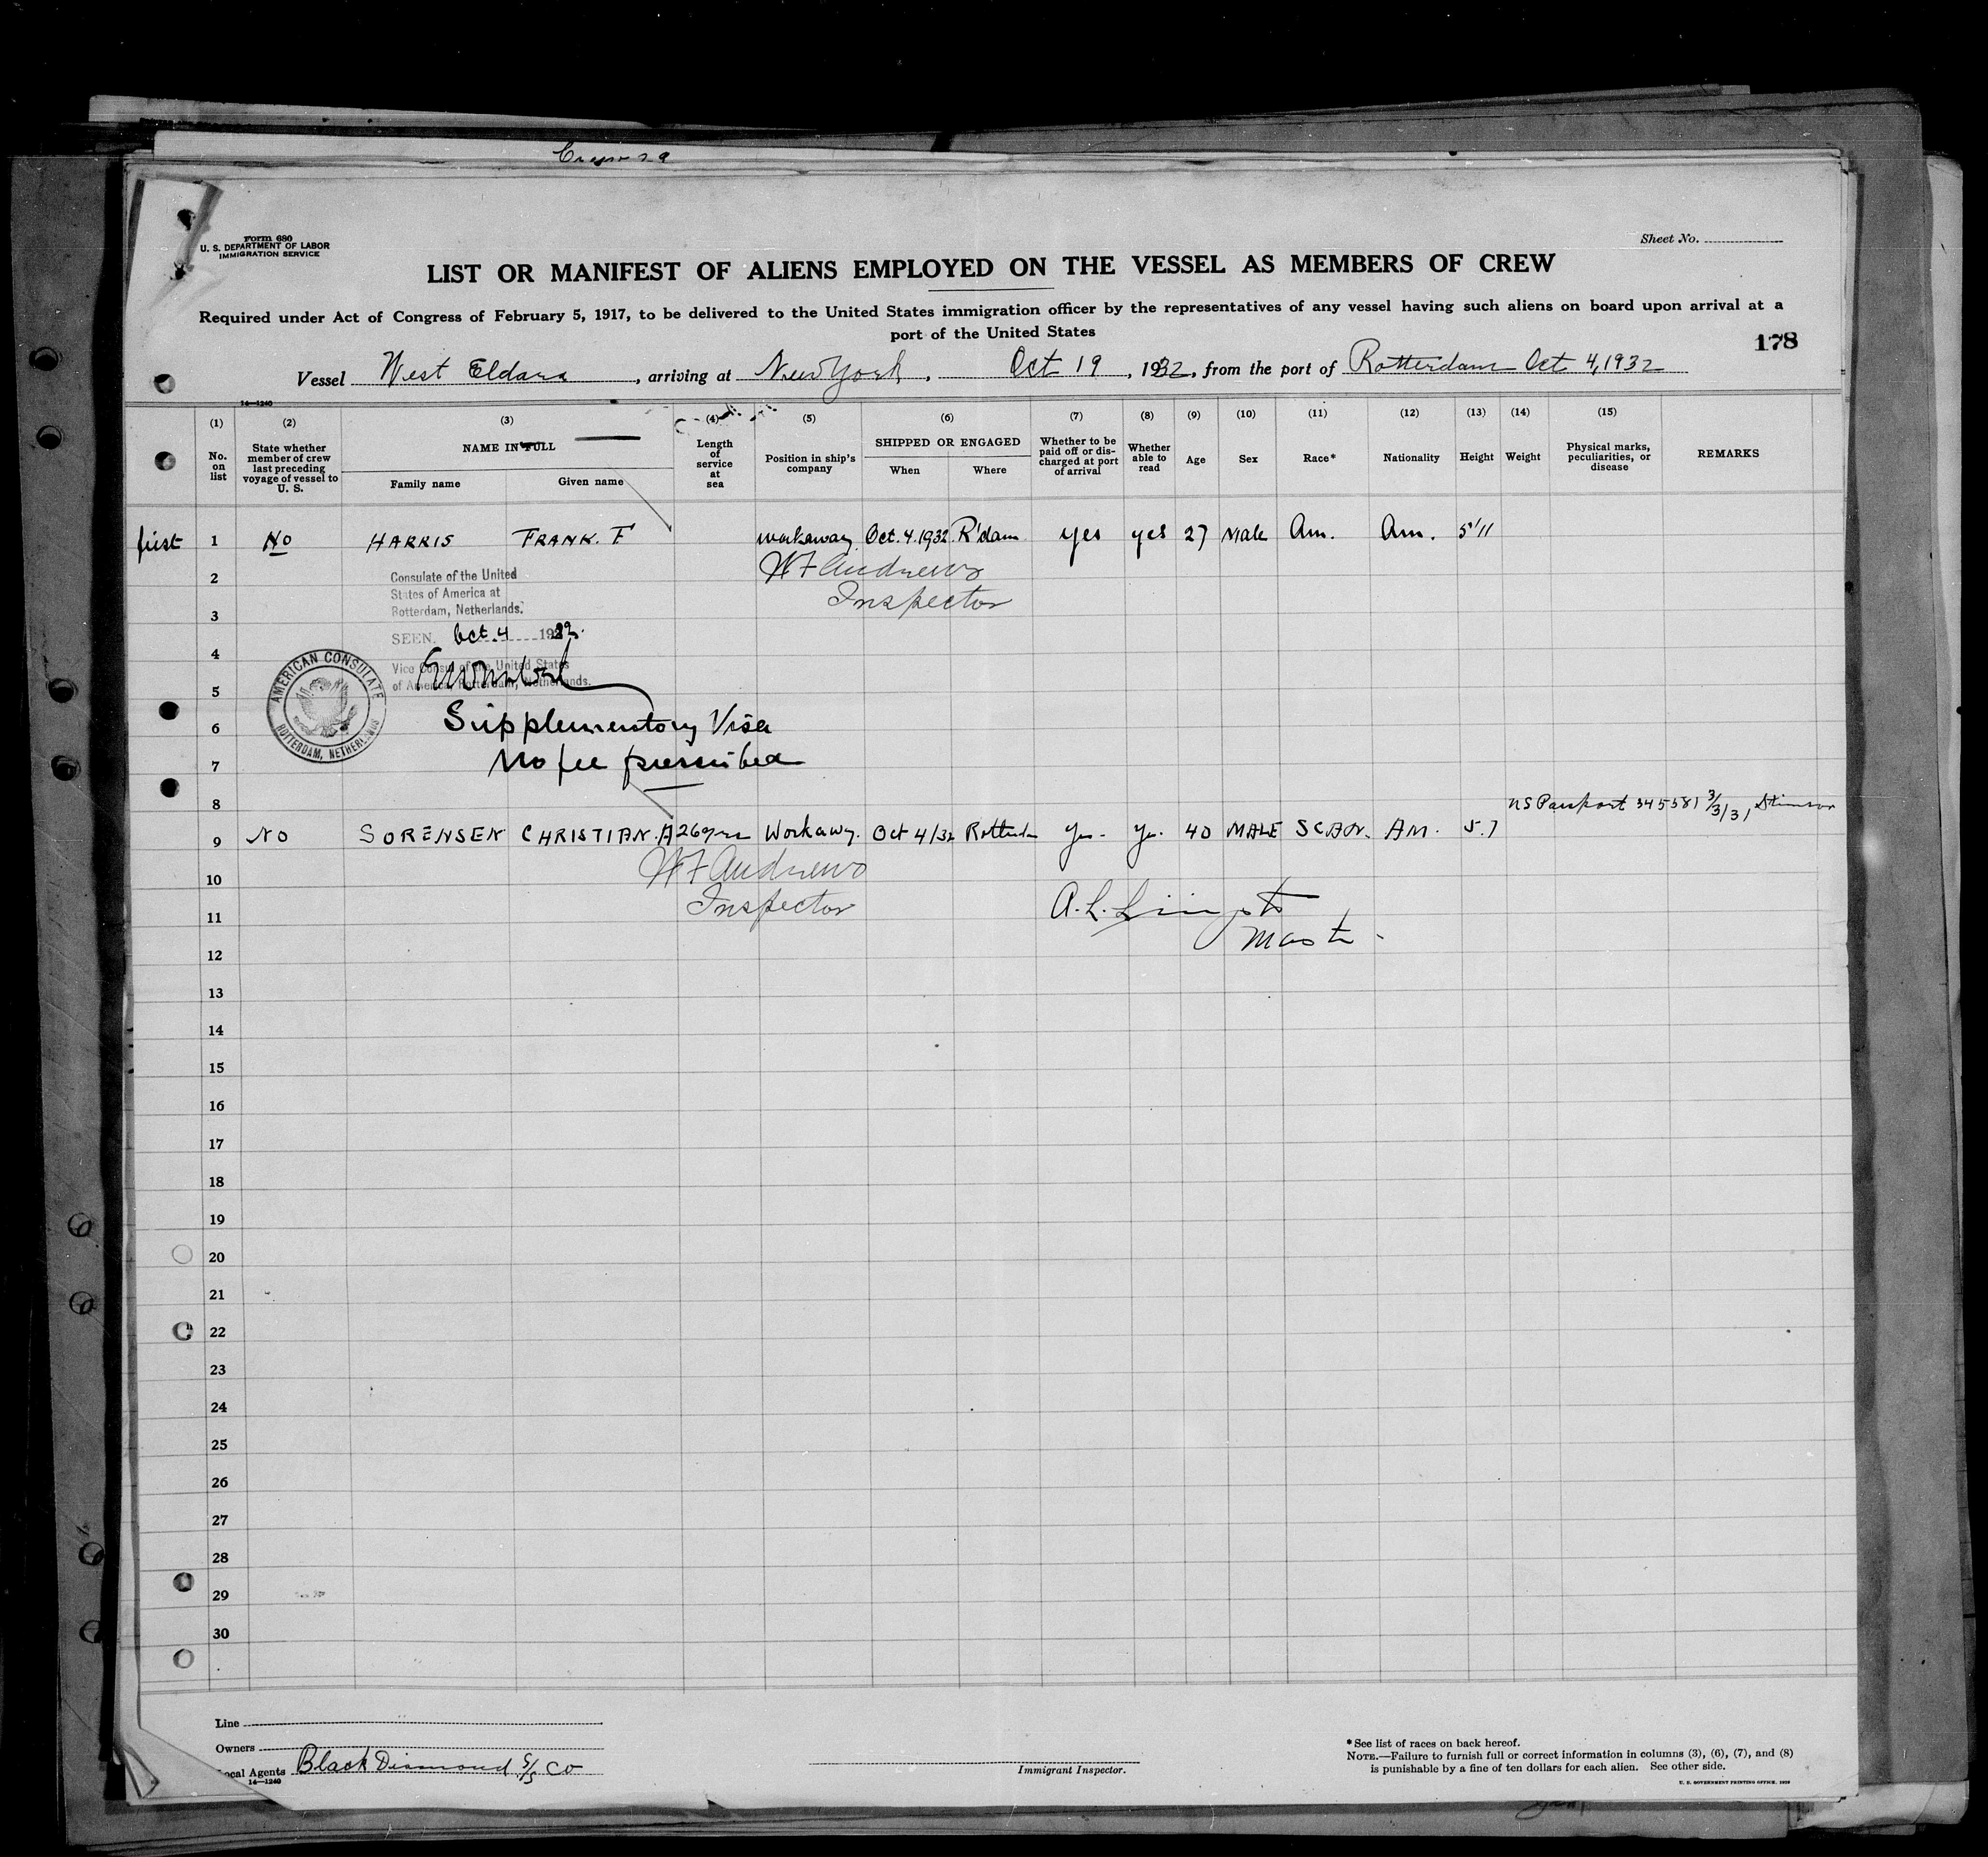 Form 680
U. S. DEPARTMENT OF LABOR
IMMIGRATION SERVICE
Sheet No.
LIST OR MANIFEST OF ALIENS EMPLOYED ON THE VESSEL AS MEMBERS OF CREW
Required under Act of Congress of February 5, 1917, to be delivered to the United States immigration officer by the representatives of any vessel having such aliens on board upon arrival at a
port of the United States
178
Vessel West Eldara, arriving at New York, Oct 19, 1932, from the port of Rotterdam Oct 4, 1932
14—1240
(1) (2) (3) (4) (5) (6) (7) (8) (9) (10) (11) (12) (13) (14) (15)
No. on list
State whether member of crew last preceding voyage of vessel to U. S.
NAME IN FULL
Family name Given name
Length of service at sea
Position in ship's company
SHIPPED OR ENGAGED
When Where
Whether to be paid off or discharged at port of arrival
Whether able to read
Age Sex Race* Nationality Height Weight
Physical marks, peculiarities, or disease
REMARKS
first 1 No HARRIS FRANK. F workaway Oct. 4. 1932 R'dam yes yes 27 Male Am. Am. 5'11
2 Consulate of the United
States of America at
WF Andrews
3 Rotterdam, Netherlands.
Inspector
SEEN. Oct. 4 1932.
4
Vice Consul of the United States
5 of America, Rotterdam, Netherlands.
AMERICAN CONSULATE
ROTTERDAM, NETHERLANDS
6 Supplementory Visa
7 No fee prescribed
8 US Passport 345581 3/3/31, Stimson
9 No SORENSEN CHRISTIAN. A 26 yrs Workawy. Oct 4/32 Rotterdm Yes. Ye. 40 MALE SCAN. AM. 5.7
10 WF Andrews
11 Inspector A. L.
12 Mastr
13
14
15
16
17
18
19
20
21
22
23
24
25
26
27
28
29
30
Line
Owners
Local Agents Black Diamond S/S Co
14—1240
Immigrant Inspector.
*See list of races on back hereof.
NOTE.—Failure to furnish full or correct information in columns (3), (6), (7), and (8)
is punishable by a fine of ten dollars for each alien. See other side.
U. S. GOVERNMENT PRINTING OFFICE. 1929